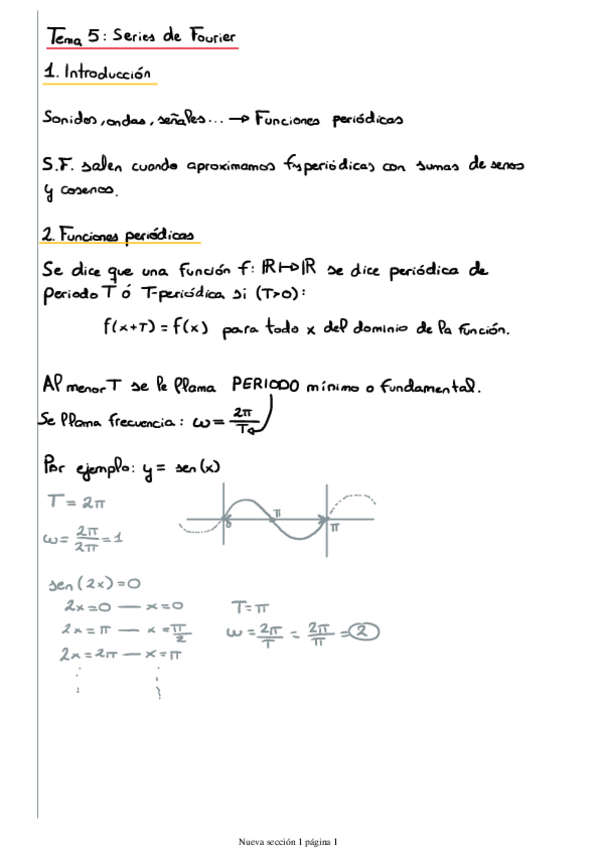 Tema 5: Series de Fourier
1. Introducción
Sonidos, ondas, señales... → Funciones periódicas
S.F. salen cuando aproximamos fns periódicas con sumas de senos
y cosenos.
2. Funciones periódicas
Se dice que una función f: ℝ↦ℝ se dice periódica de
periodo T ó T-periódica si (T>0):
f(x+T) = f(x) para todo x del dominio de la función.
Al menor T se le llama PERIODO mínimo o fundamental.
Se llama frecuencia: ω = 2π/T
Por ejemplo: y = sen(x)
T = 2π
0 π π
ω = 2π/2π = 1
sen(2x)=0
2x=0 — x=0 T=π
2x=π — x=π/2 ω=2π/T = 2π/π = 2
2x=2π — x=π
Nueva sección 1 página 1